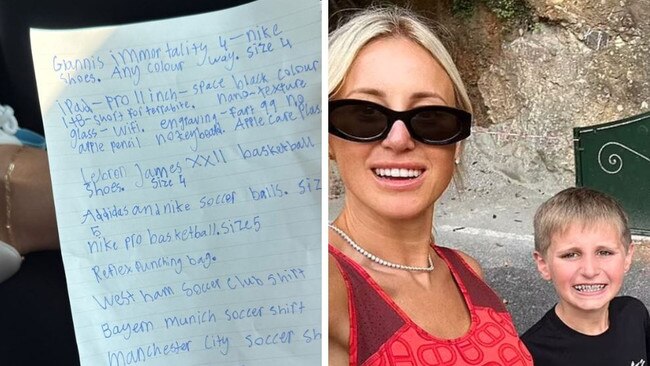 Giannis immortality 4 - nike
shoes. Any colour way. size 4
iPad - pro 11 inch - space black colour
1 tB - short for terrabite. nano - texture
glass - wifi. engraving - fart 99 no
apple pencil no keyboard. Apple care plus
Lebron James XXII basketball
shoes. size 4
Addidas and nike soccer balls. siz
5
nike pro basketball. size 5
Reflex punching bag.
West ham soccer club shift
Bayern munich soccer shift
Manchester City soccer sh